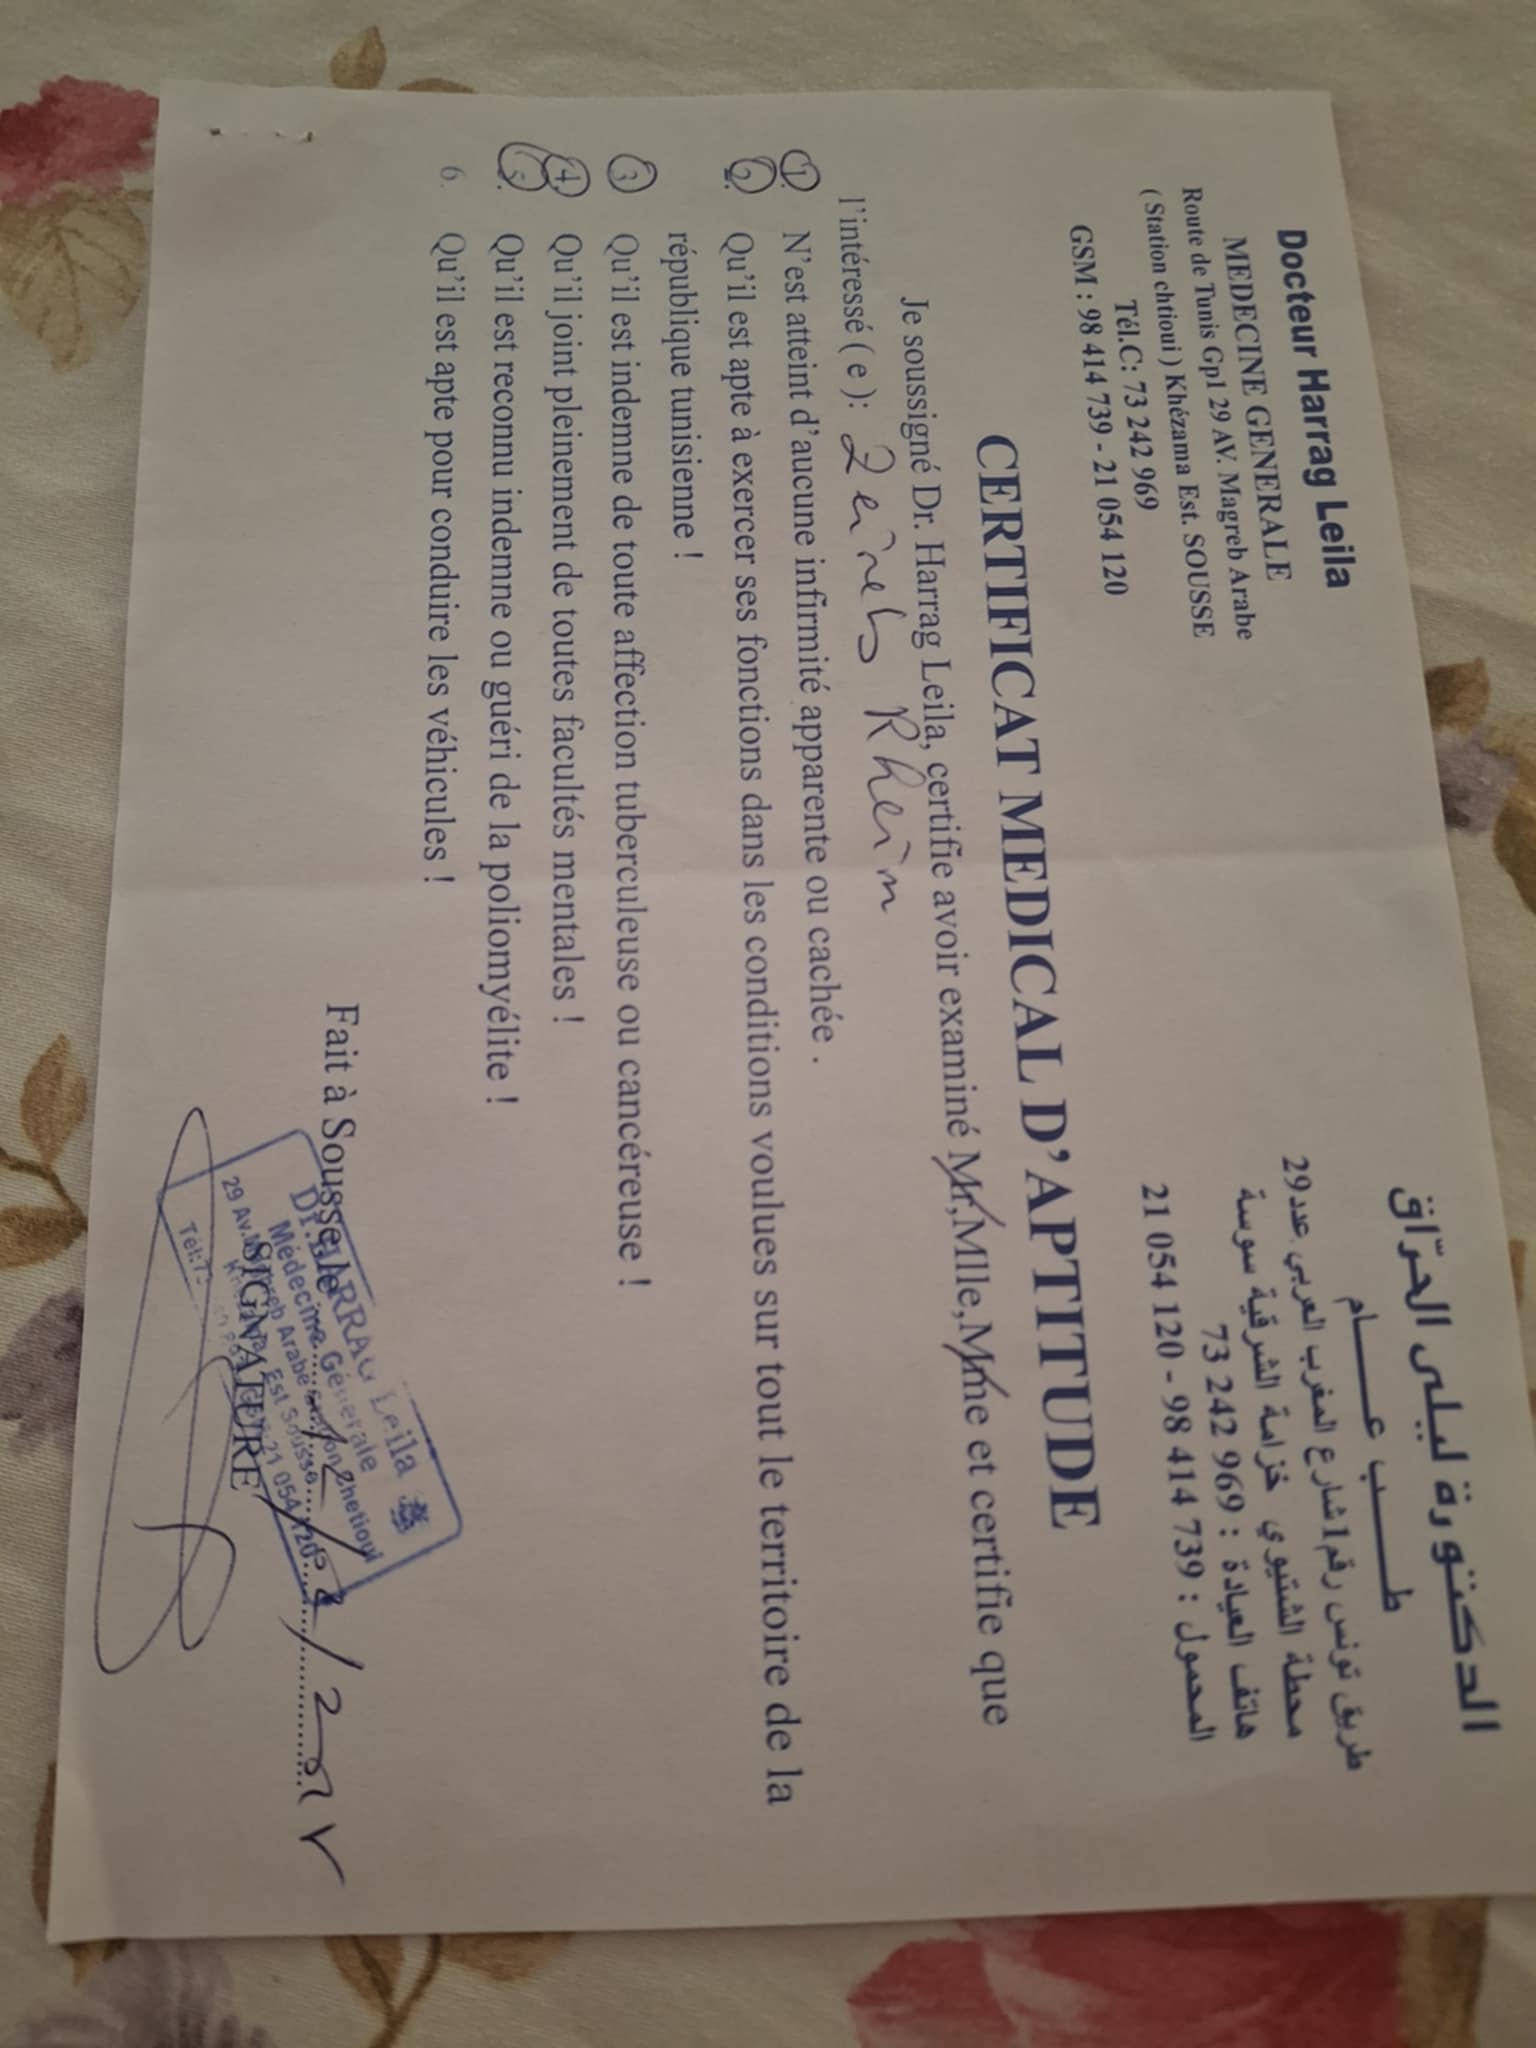 Docteur Harrag Leila
MEDECINE GENERALE
Route de Tunis Gp1 29 AV. Magreb Arabe
( Station chtioui ) Khézama Est. SOUSSE
Tél.C: 73 242 969
GSM : 98 414 739 - 21 054 120
الدكتورة ليلى الحرّاق
طـــب عـــام
طريق تونس رقم 1 شارع المغرب العربي عدد 29
محطة الشتيوي خزامة الشرقية سوسة
هاتف العيادة : 73 242 969
المحمول : 98 414 739 - 21 054 120
CERTIFICAT MEDICAL D'APTITUDE
Je soussigné Dr. Harrag Leila, certifie avoir examiné Mr,Mlle,Mme et certifie que
l'intéressé ( e ): Zeineb Rheim
1. N'est atteint d'aucune infirmité apparente ou cachée .
2. Qu'il est apte à exercer ses fonctions dans les conditions voulues sur tout le territoire de la
république tunisienne !
3 Qu'il est indemne de toute affection tuberculeuse ou cancéreuse !
4 Qu'il joint pleinement de toutes facultés mentales !
5. Qu'il est reconnu indemne ou guéri de la poliomyélite !
6. Qu'il est apte pour conduire les véhicules !
Fait à Sousse le
SIGNATURE
Dr. HARRAG Leila
Médecine Générale
29 Av. Magreb Arabe Station Chetioui
Est Sousse
21 054 120